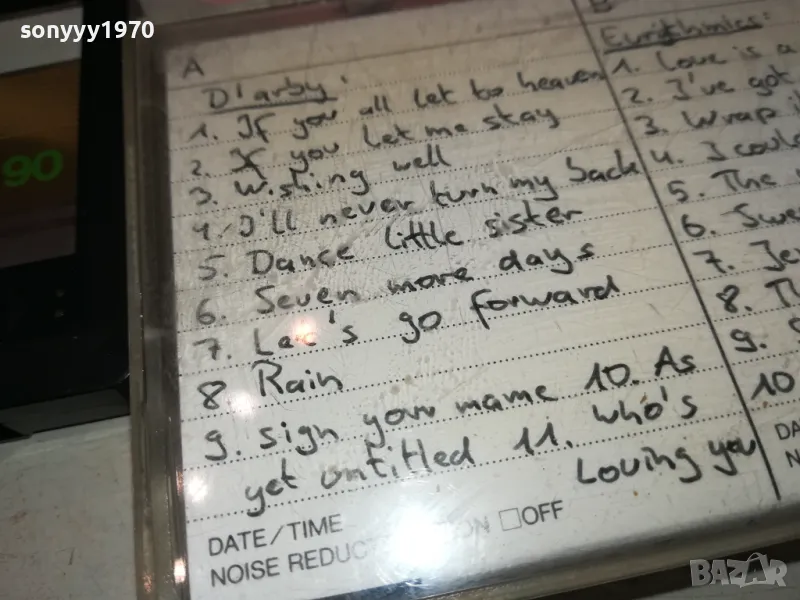 sonyyy1970
90
A
D'arby.
1. If you all let to heaven
2. If you let me stay
3. Wishing well
4. I'll never turn my back
5. Dance little sister
6. Seven more days
7. Let's go forward
8. Rain
9. sign your name 10. As
yet untitled 11. Who's
Loving you
DATE/TIME
NOISE REDUCT ON □OFF
B
Eurithmics:
1. Love is a
2. I've got
3. Wrap i
4. I could
5. The
6. Swe
7. Je
8. T
9. S
10
DA
N
BAZAR